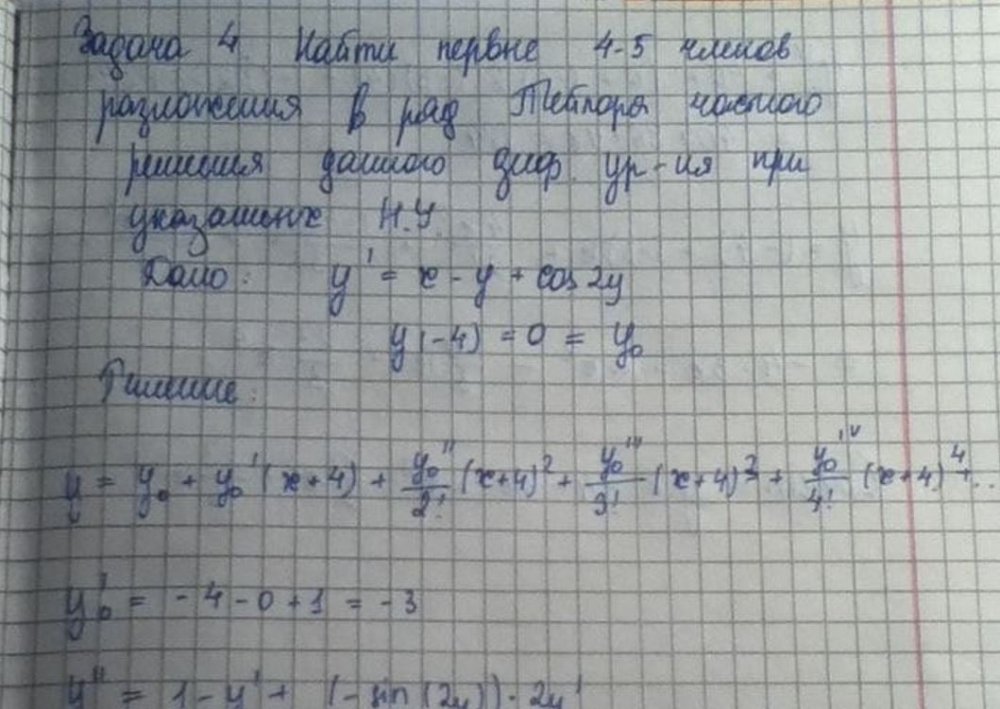 Задача 4 Найти первые 4-5 членов
разложения в ряд Тейлора частного
решения данного диф. ур-ия при
указанных Н.У.
Дано: y' = x - y + cos 2y
y(-4) = 0 = y₀
Решение:
y = y₀ + y₀'(x+4) + y₀''/2! (x+4)² + y₀'''/3! (x+4)³ + y₀'ᵛ/4! (x+4)⁴ + ...
y₀' = -4 - 0 + 1 = -3
y'' = 1 - y' + (-sin(2y)) · 2y'